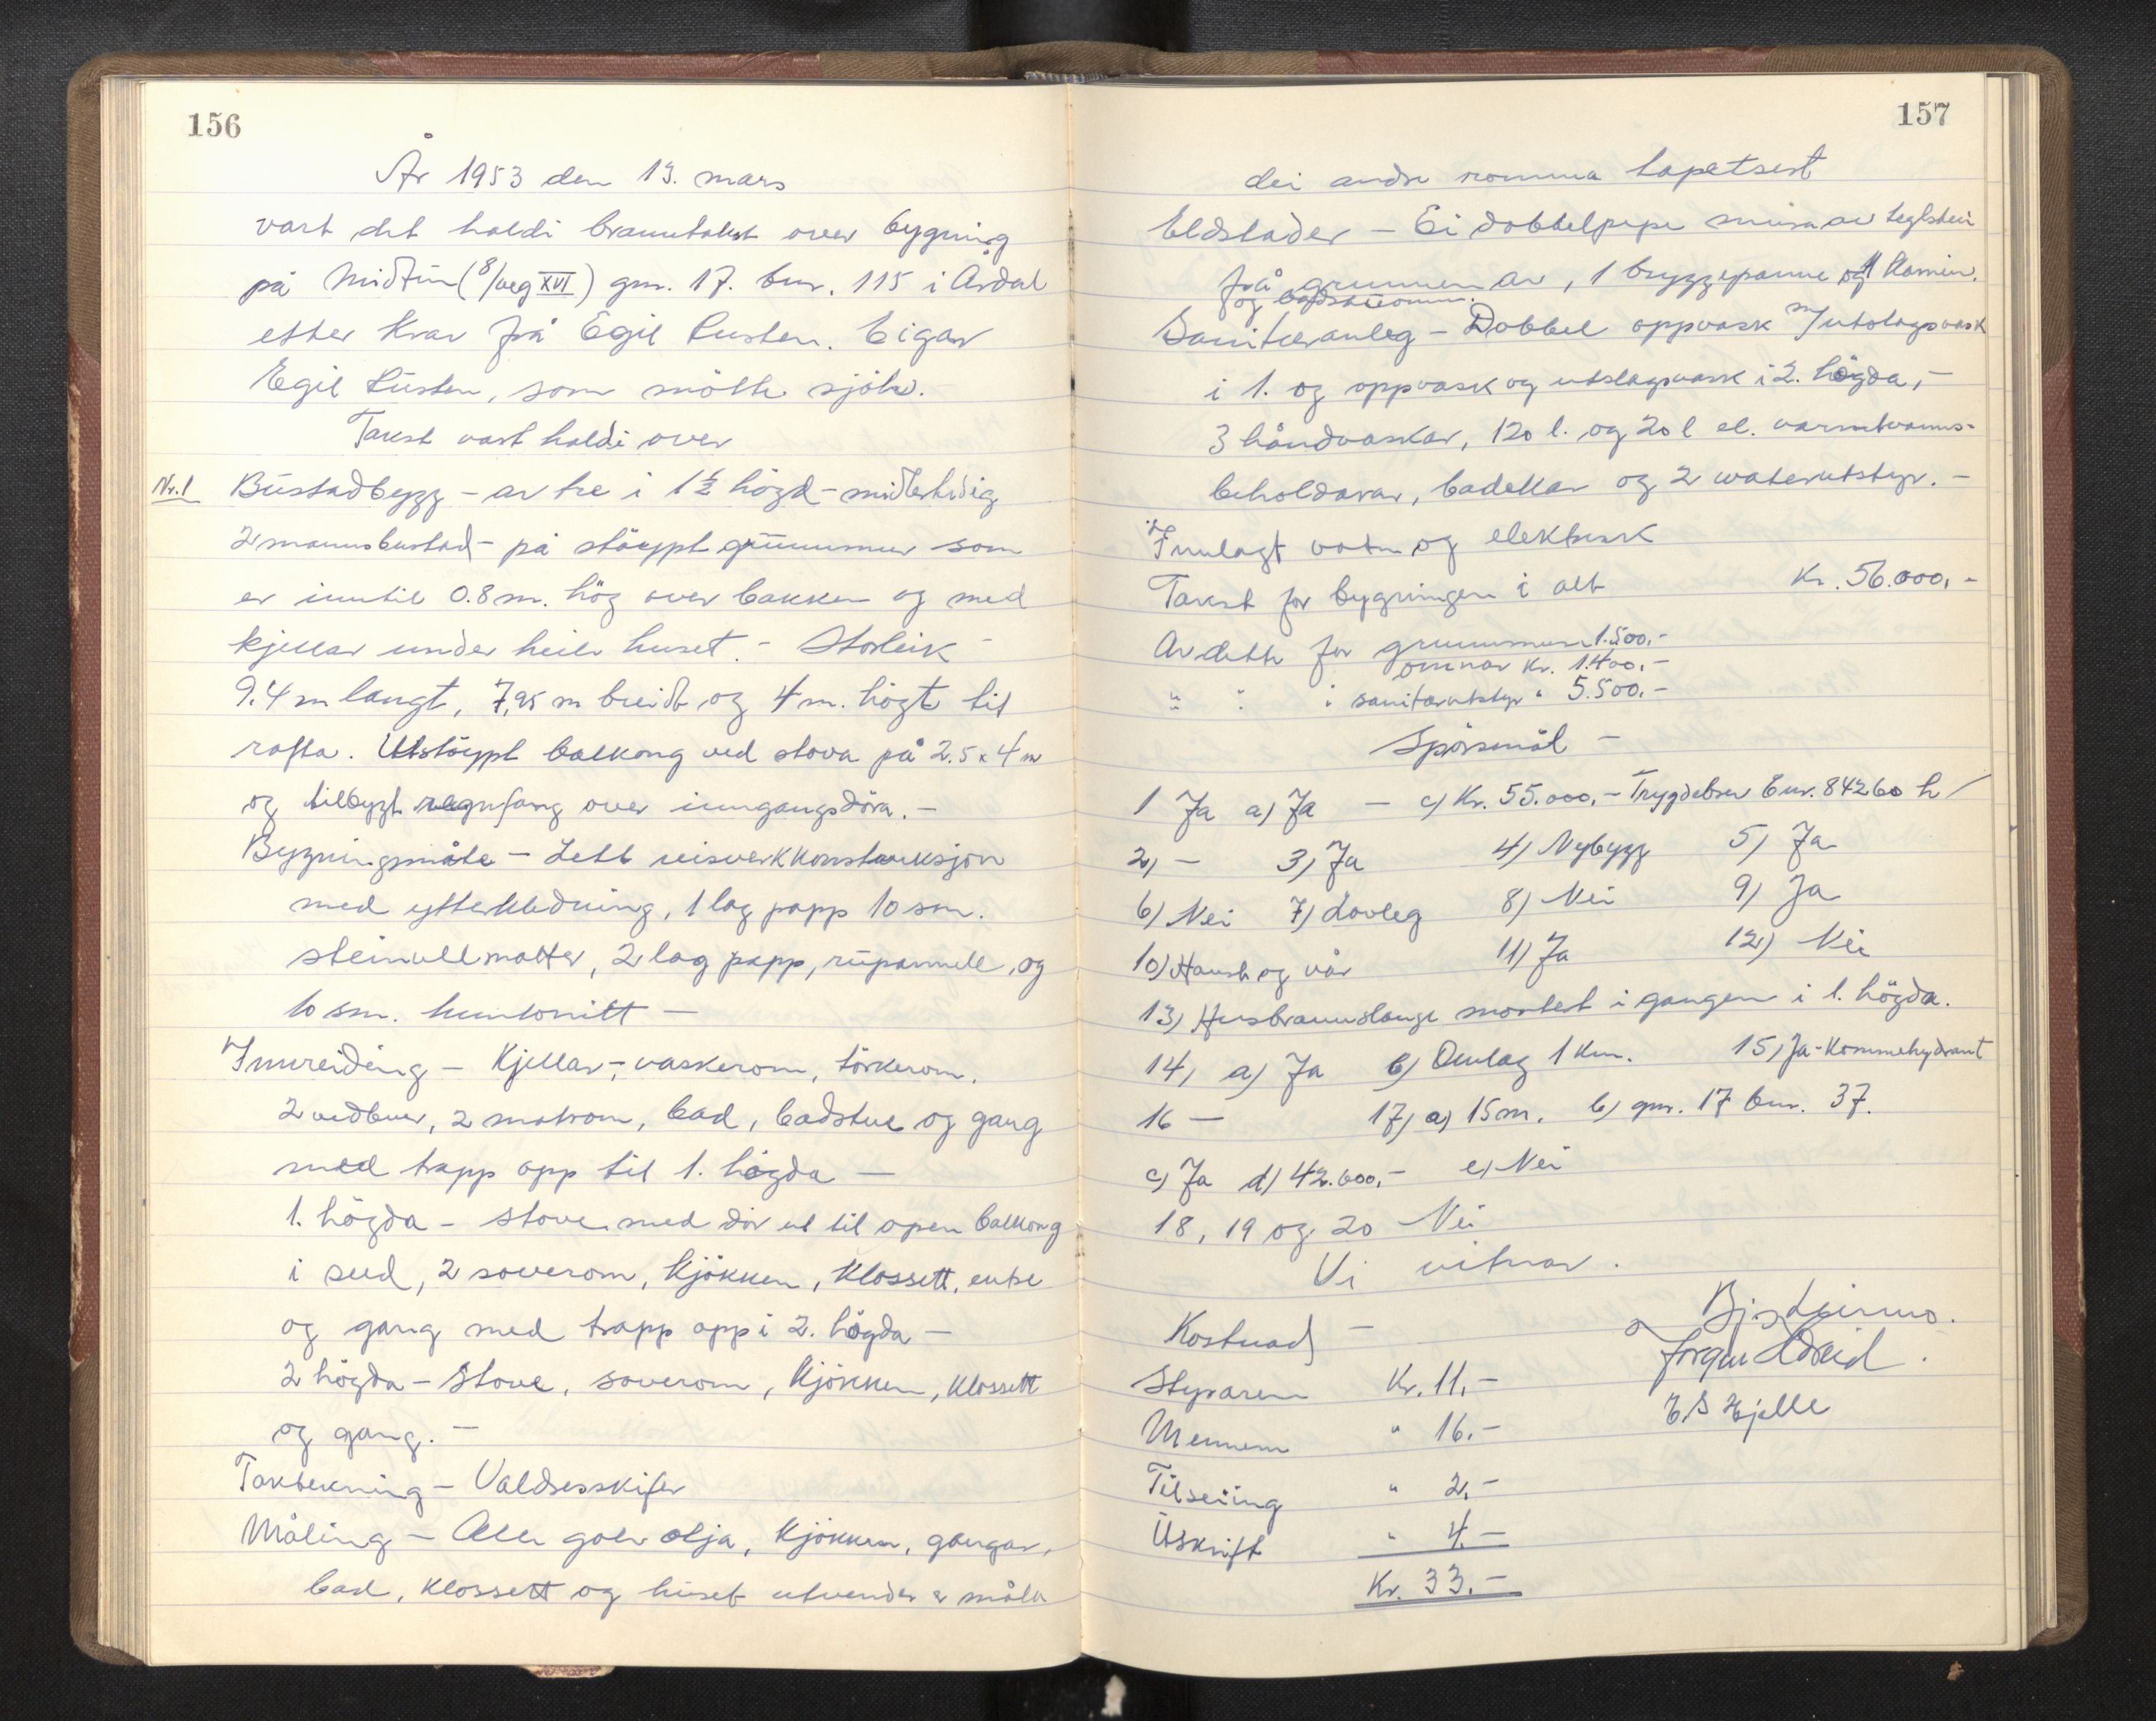 156
År 1953 den 13. mars
vart det haldi branntakst over bygning
på Midtun (8/veg XVI) gnr. 17. bnr. 115 i Årdal
etter krav frå Egil Lusten. Eigar
Egil Lusten, som mötte sjölv.
Takst vart haldi over
Nr.1 Bustadbygg - av tre i 1 1/2 högd - midlertidig
2 mannsbustad - på stöypt grunnmur som
er inntil 0.8 m. hög over bakken og med
kjellar under heile huset. - Storleik -
9.4 m langt, 7,95 m breidt og 4 m. högt til
rafta. Utstöypt balkong ved stova på 2.5 x 4 m
og tilbygt regnfang over inngangsdöra. -
Bygningsmåte - Lett reisverkkonstruksjon
med ytterkledning, 1 lag papp 10 sm.
steinullmatter, 2 lag papp, rupannell, og
10 sm. huntonitt -
Innreiding - Kjellar -, vaskerom, törkerom,
2 vedbuer, 2 matrom, bad, badstue og gang
med trapp opp til 1. högda -
1. högda - stove med dör ut til open balkong
i sud, 2 soverom, kjökken, klossett, entre
og gang med trapp opp i 2. högda -
2 högda - Stove, soverom, kjökken, klossett
og gang. -
Taktekning - Valdresskifer
Måling - Alle golv olja, kjökken, gangar,
bad, klossett og huset utvendes er måla
157
dei andre romma tapetsert
Eldstader - Ei dobbelpipe mura av teglstein
frå grunnen av, 1 bryggepanne og 1 kamin.
og badstueomn.
Sanitæranleg - Dobbel oppvask m/utslagsvask
i 1. og oppvask og utslagsvask i 2. högda, -
3 håndvaskar, 120 l. og 20 l el. varmtvanns-
beholdarar, badekar og 2 waterutstyr. -
Innlagt vatn og elektrisk
Takst for bygningen i alt Kr. 56.000,-
Av dette for grunnmuren 1.500,-
omnar Kr. 1.400,-
" " " sanitærutstyr " 5.500,-
Spörsmål -
1 Ja a) Ja - c) Kr. 55.000,- Trygdebrev Bnr. 84260 h/
2) - 3) Ja 4) Nybygg 5) Ja
6) Nei 7) Lovleg 8) Nei 9) Ja
10) Haust og vår 11) Ja 12) Nei
13) Husbrannslange montert i gangen i 1. högda.
14) a) Ja b) Omlag 1 km. 15) Ja - Kommehydrant
16 - 17) a) 15 m. b) gnr. 17 bnr. 37.
c) Ja d) 42.600,- e) Nei
18, 19 og 20 Nei
Vi vitnar.
Kostnad -
Styraren Kr. 11,-
Mennene " 16.-
Tilseiing " 2.-
Utskrift " 4.-
Kr. 33.-
E.S Hjelle